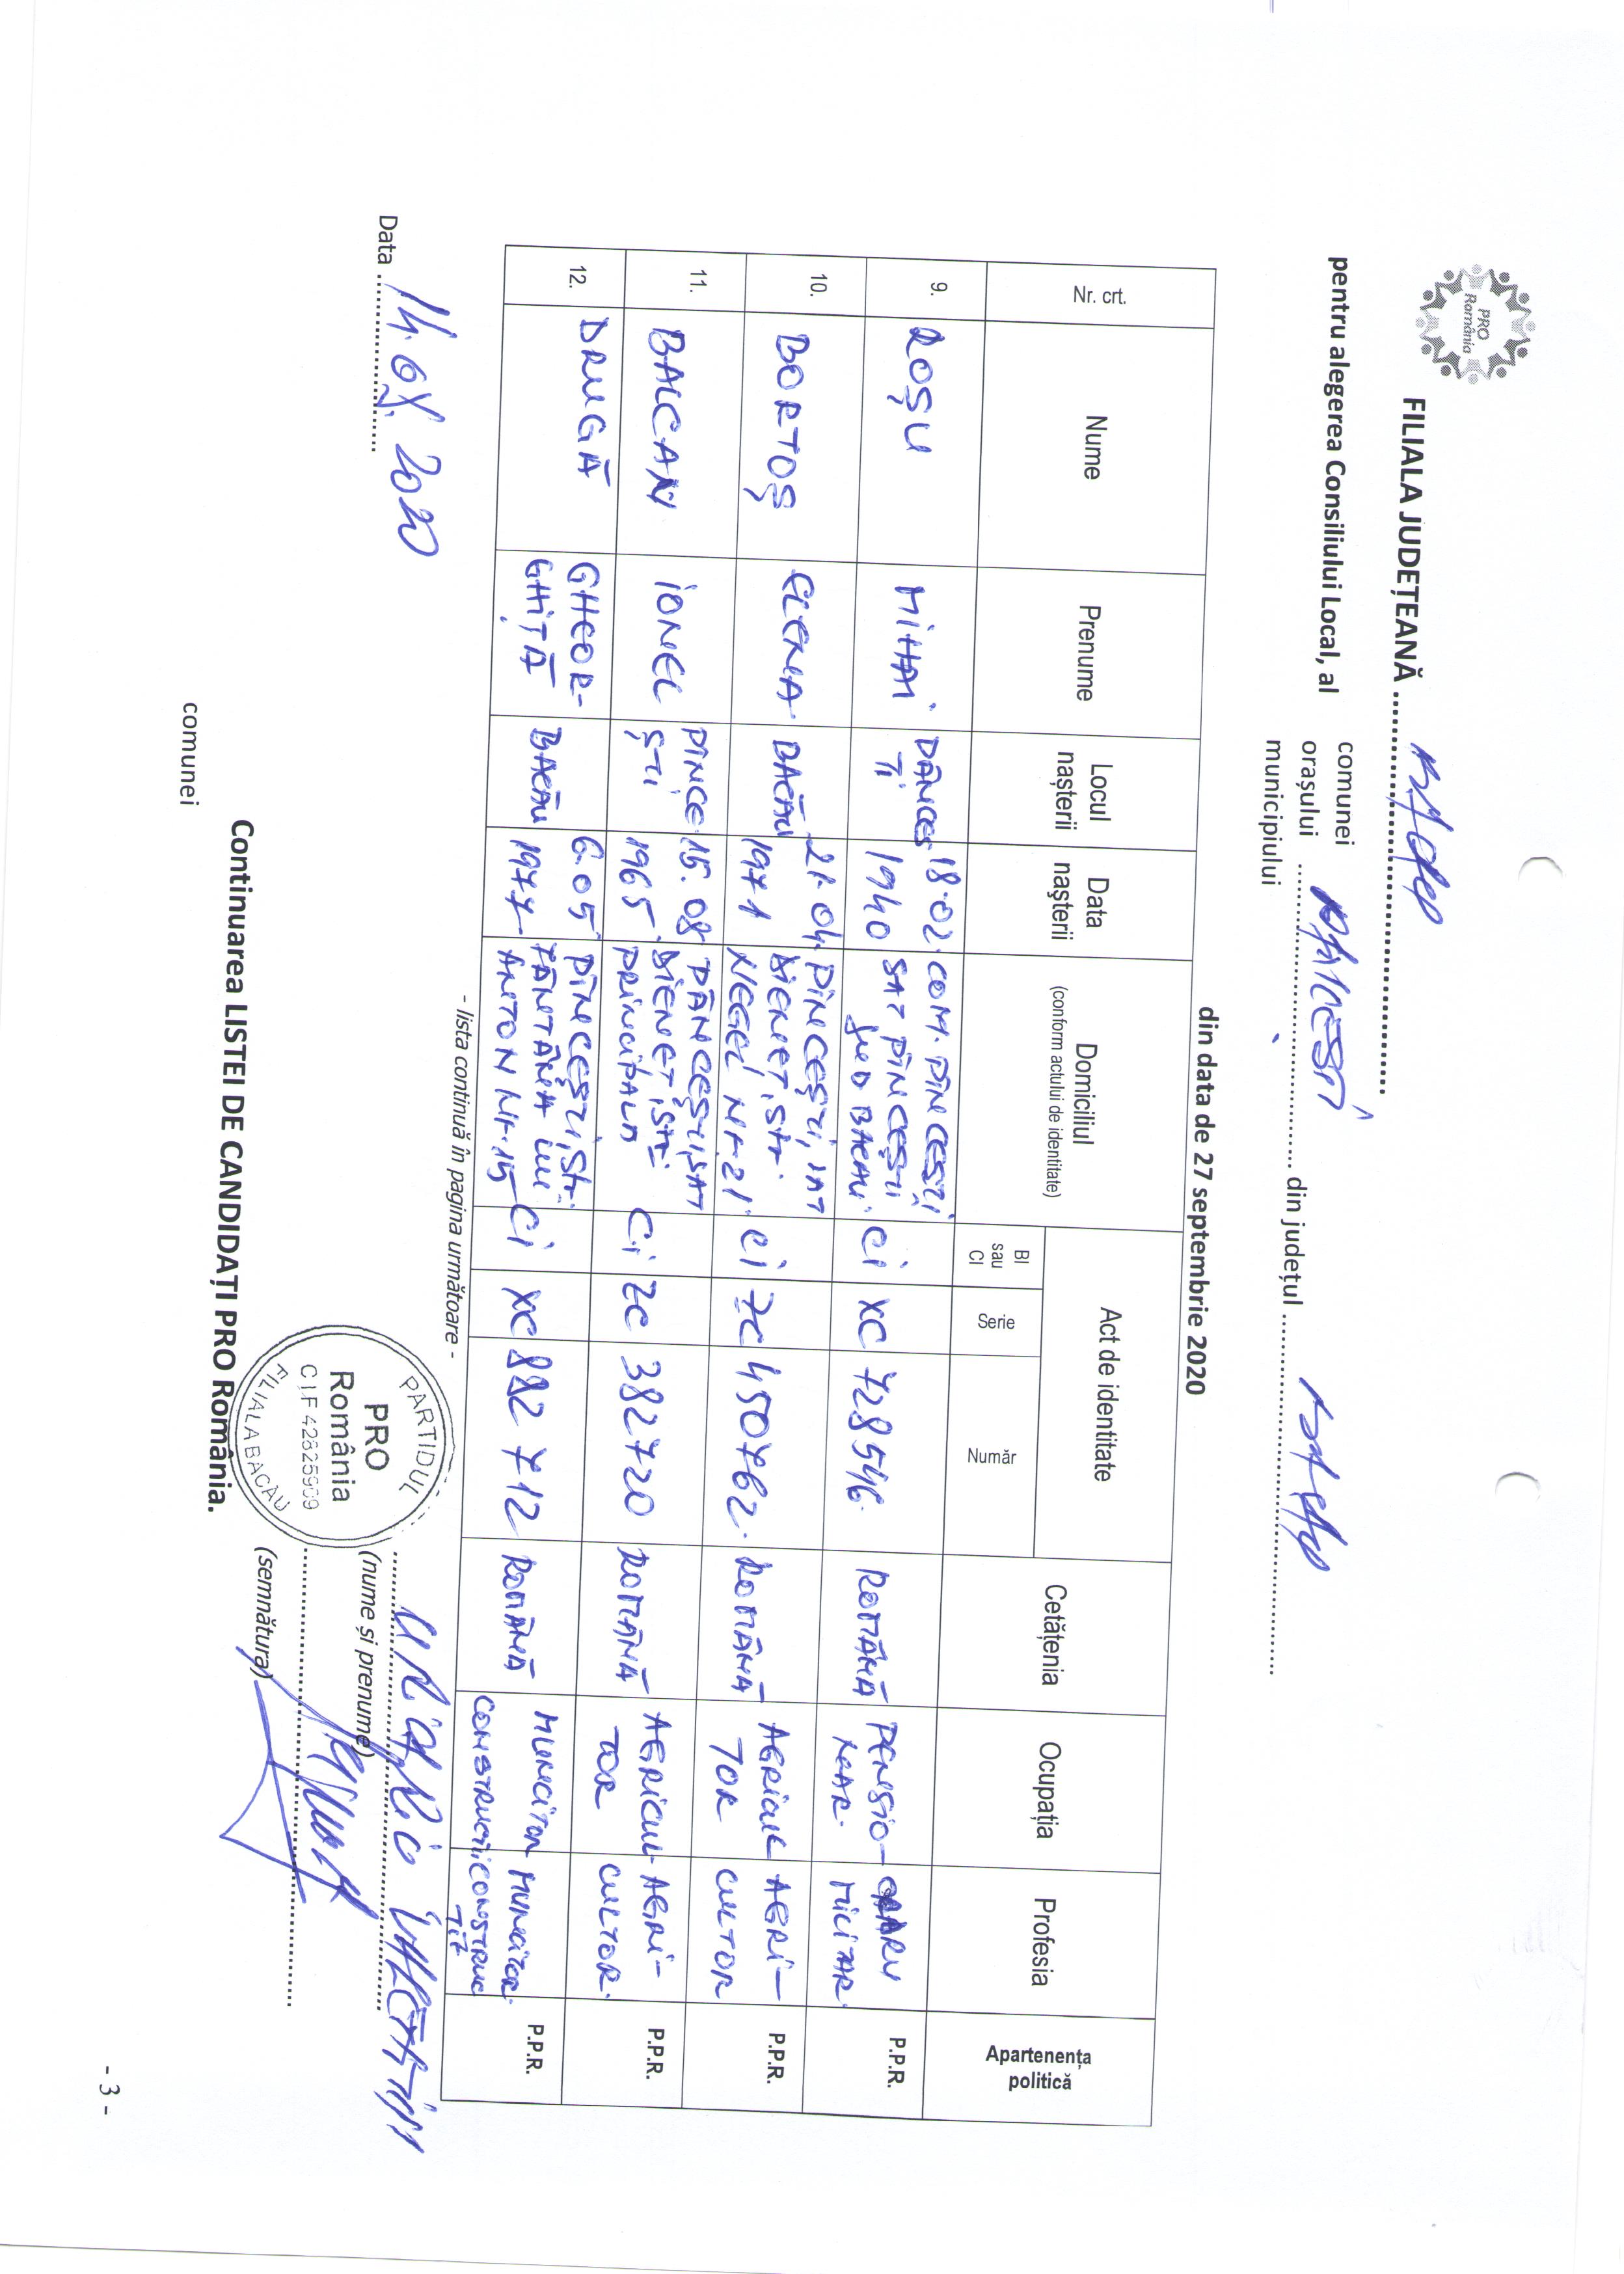 PRO
România
FILIALA JUDEȚEANĂ
pentru alegerea Consiliului Local, al
comunei
orașului
municipiului
din județul
din data de 27 septembrie 2020
Nr. crt. Nume Prenume Locul nașterii Data nașterii Domiciliul (conform actului de identitate) Act de identitate Cetățenia Ocupația Profesia Apartenența politică
BI sau CI Serie Număr
9. ROȘU MIHAI 18.02. 1940 COM. PÎNCEȘTI SAT PÎNCEȘTI JUD BACĂU. CI XC 728546. ROMÂNĂ PENSIONAR. MILITAR. P.P.R.
10. BORTOȘ ELENA BACĂU 21.04. 1971 PÎNCEȘTI, SAT DIENEȚ, Str. NEGEL Nr 21. CI ZC 450762. ROMÂNĂ AGRICULTOR AGRI-CULTOR P.P.R.
11. BALCAN IONEL PÎNCEȘTI 15.08 1965. PÂNCEȘTI, SAT DIENEȚ, Str PRINCIPALĂ CI ZC 382720 ROMÂNĂ AGRICULTOR AGRI-CULTOR. P.P.R.
12. DRUGĂ GHEOR-GHIȚĂ BACĂU 6.05 1977 PÎNCEȘTI, Str. FÂNTÂNA LUI ANTON Nr. 15 CI XC 882712 ROMÂNĂ MUNCITOR CONSTRUCȚII MUNCITOR P.P.R.
- lista continuă în pagina următoare -
Data 14.08.2020
(nume și prenume)
(semnătura)
PARTIDUL
PRO
România
CIF 42825939
FILIALA BACĂU
Continuarea LISTEI DE CANDIDAȚI PRO România.
comunei
- 3 -